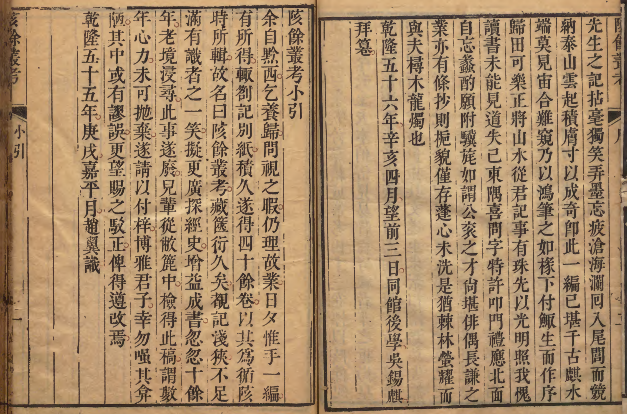 先生之記拈毫獨笑弄墨忘疲滄海瀾回入尾閭而競
納泰山雲起積膚寸以成奇卽此一編已堪千古麒水
端莫見宙合難窺乃以鴻筆之如椽下付鯫生而作序
歸田可樂正將山水從君記事有珠先以光明照我愧
讀書未能見道失已東隅喜問字特許叩門禮應北面
自忘蠡酌願附驥旄如謂公亥之才尙堪俳偶長謙之
業亦有條抄則挹貌僅存蓬心未洗是猶棘林螢耀而
與夫樳木龍燭也
乾隆五十六年辛亥四月望前三日同館後學吳錫麒
拜篹
陔餘叢考小引
余自黔西乞養歸問視之暇仍理故業日夕惟手一編
有所得輒劄記別紙積久遂得四十餘卷以其爲循陔
時所輯故名曰陔餘叢考藏篋衍久矣覩記淺狹不足
滿有識者之一笑擬更廣探經史增益成書忽忽十餘
年老境浸尋此事遂廢兒輩從敝簏中檢得此稿謂數
年心力未可拋棄遂請以付梓博雅君子幸勿嗤其弇
陋其中或有謬誤更望賜之駁正俾得遵改焉
乾隆五十五年庚戌嘉平月趙翼識
陔餘叢考
小引